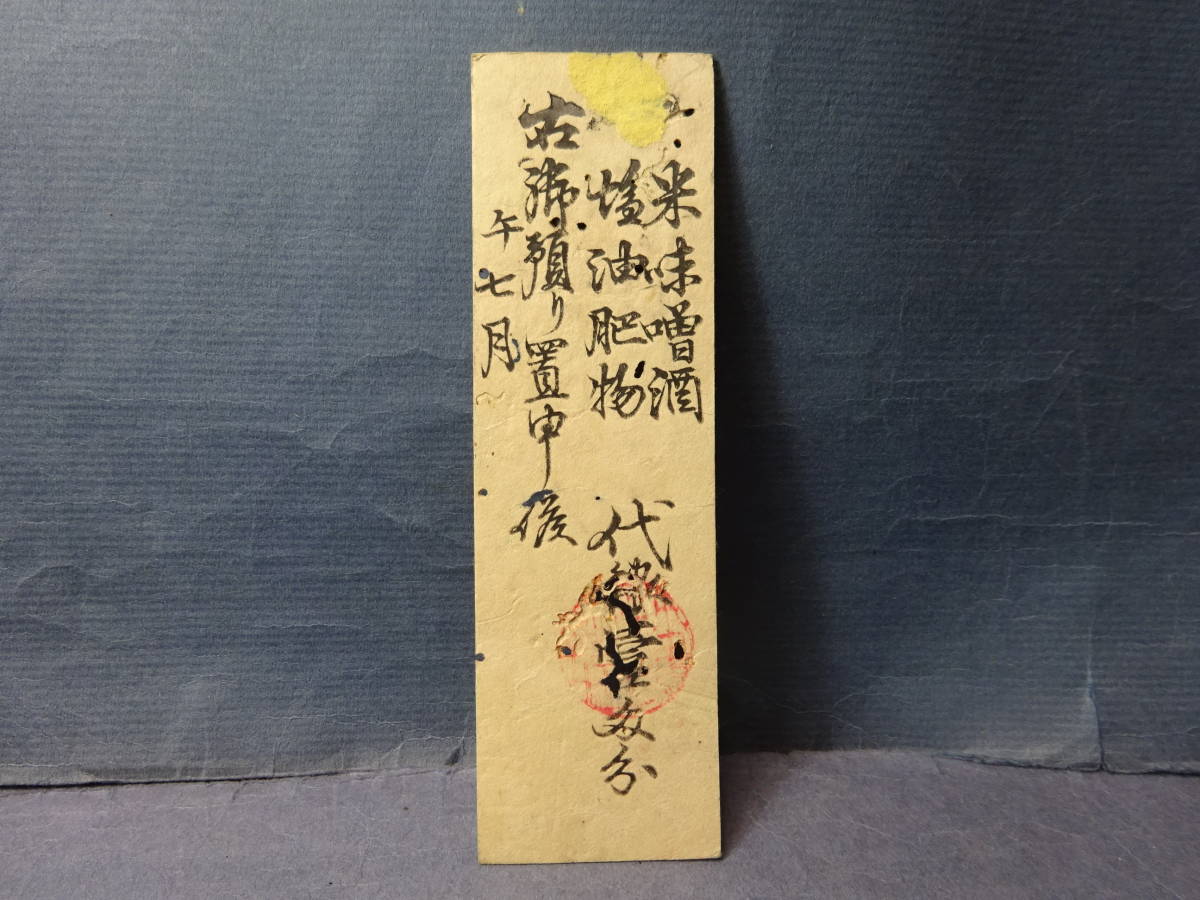 米味噌酒
塩油肥物
代銀壱匁分
右御預り置申候
午七月